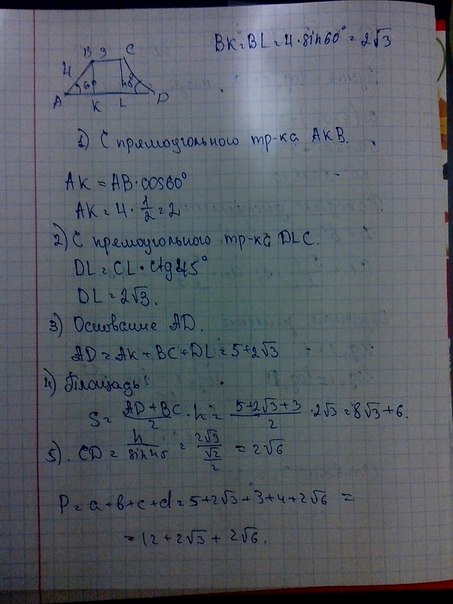 B 3 C
4
60° 45°
A K L D
BK = BL = 4·sin60° = 2√3
1) С прямоугольного тр-ка AKB.
AK = AB·cos60°
AK = 4·1/2 = 2
2) С прямоугольного тр-ка DLC.
DL = CL·ctg45°
DL = 2√3.
3) Основание AD.
AD = AK + BC + DL = 5 + 2√3
4) Площадь:
S = (AD + BC)/2 · h = (5 + 2√3 + 3)/2 · 2√3 = 8√3 + 6.
5). CD = h/sin45 = 2√3/(√2/2) = 2√6
P = a + b + c + d = 5 + 2√3 + 3 + 4 + 2√6 =
= 12 + 2√3 + 2√6.